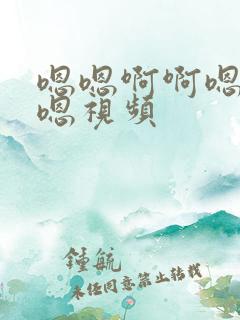 嗯嗯啊啊嗯
嗯視頻
鍾毓
未经同意禁止转载